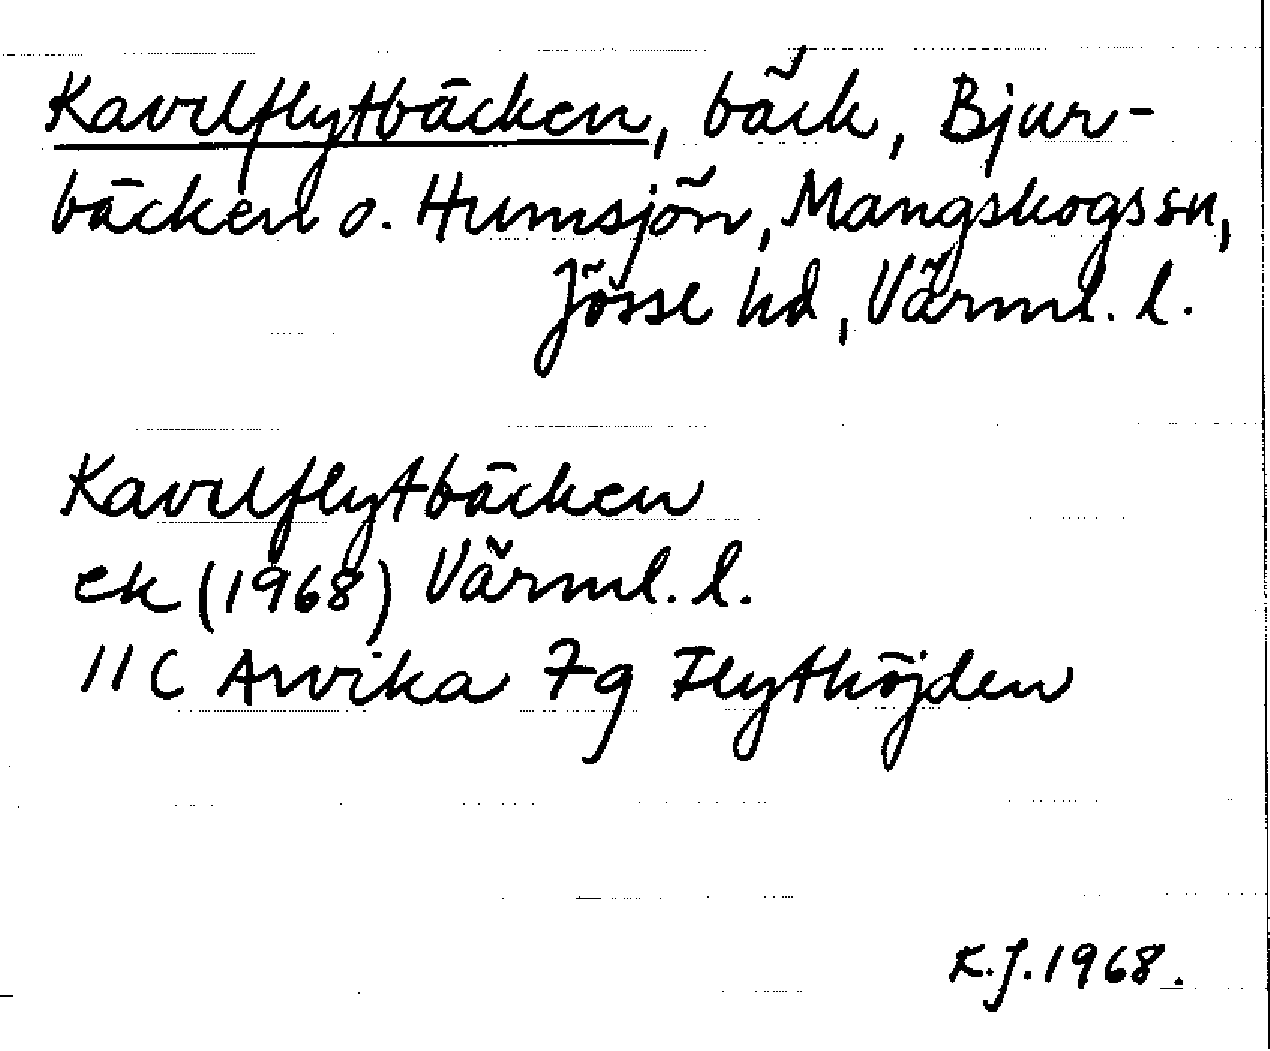 Kavelflytbäcken, bäck, Bjur-
bäcken o. Humsjön, Mangskogs sn,
Jösse hd, Värml. l.
Kavelflytbäcken
ek (1968) Värml. l.
11C Arvika 7g Flythöjden
K.J. 1968.